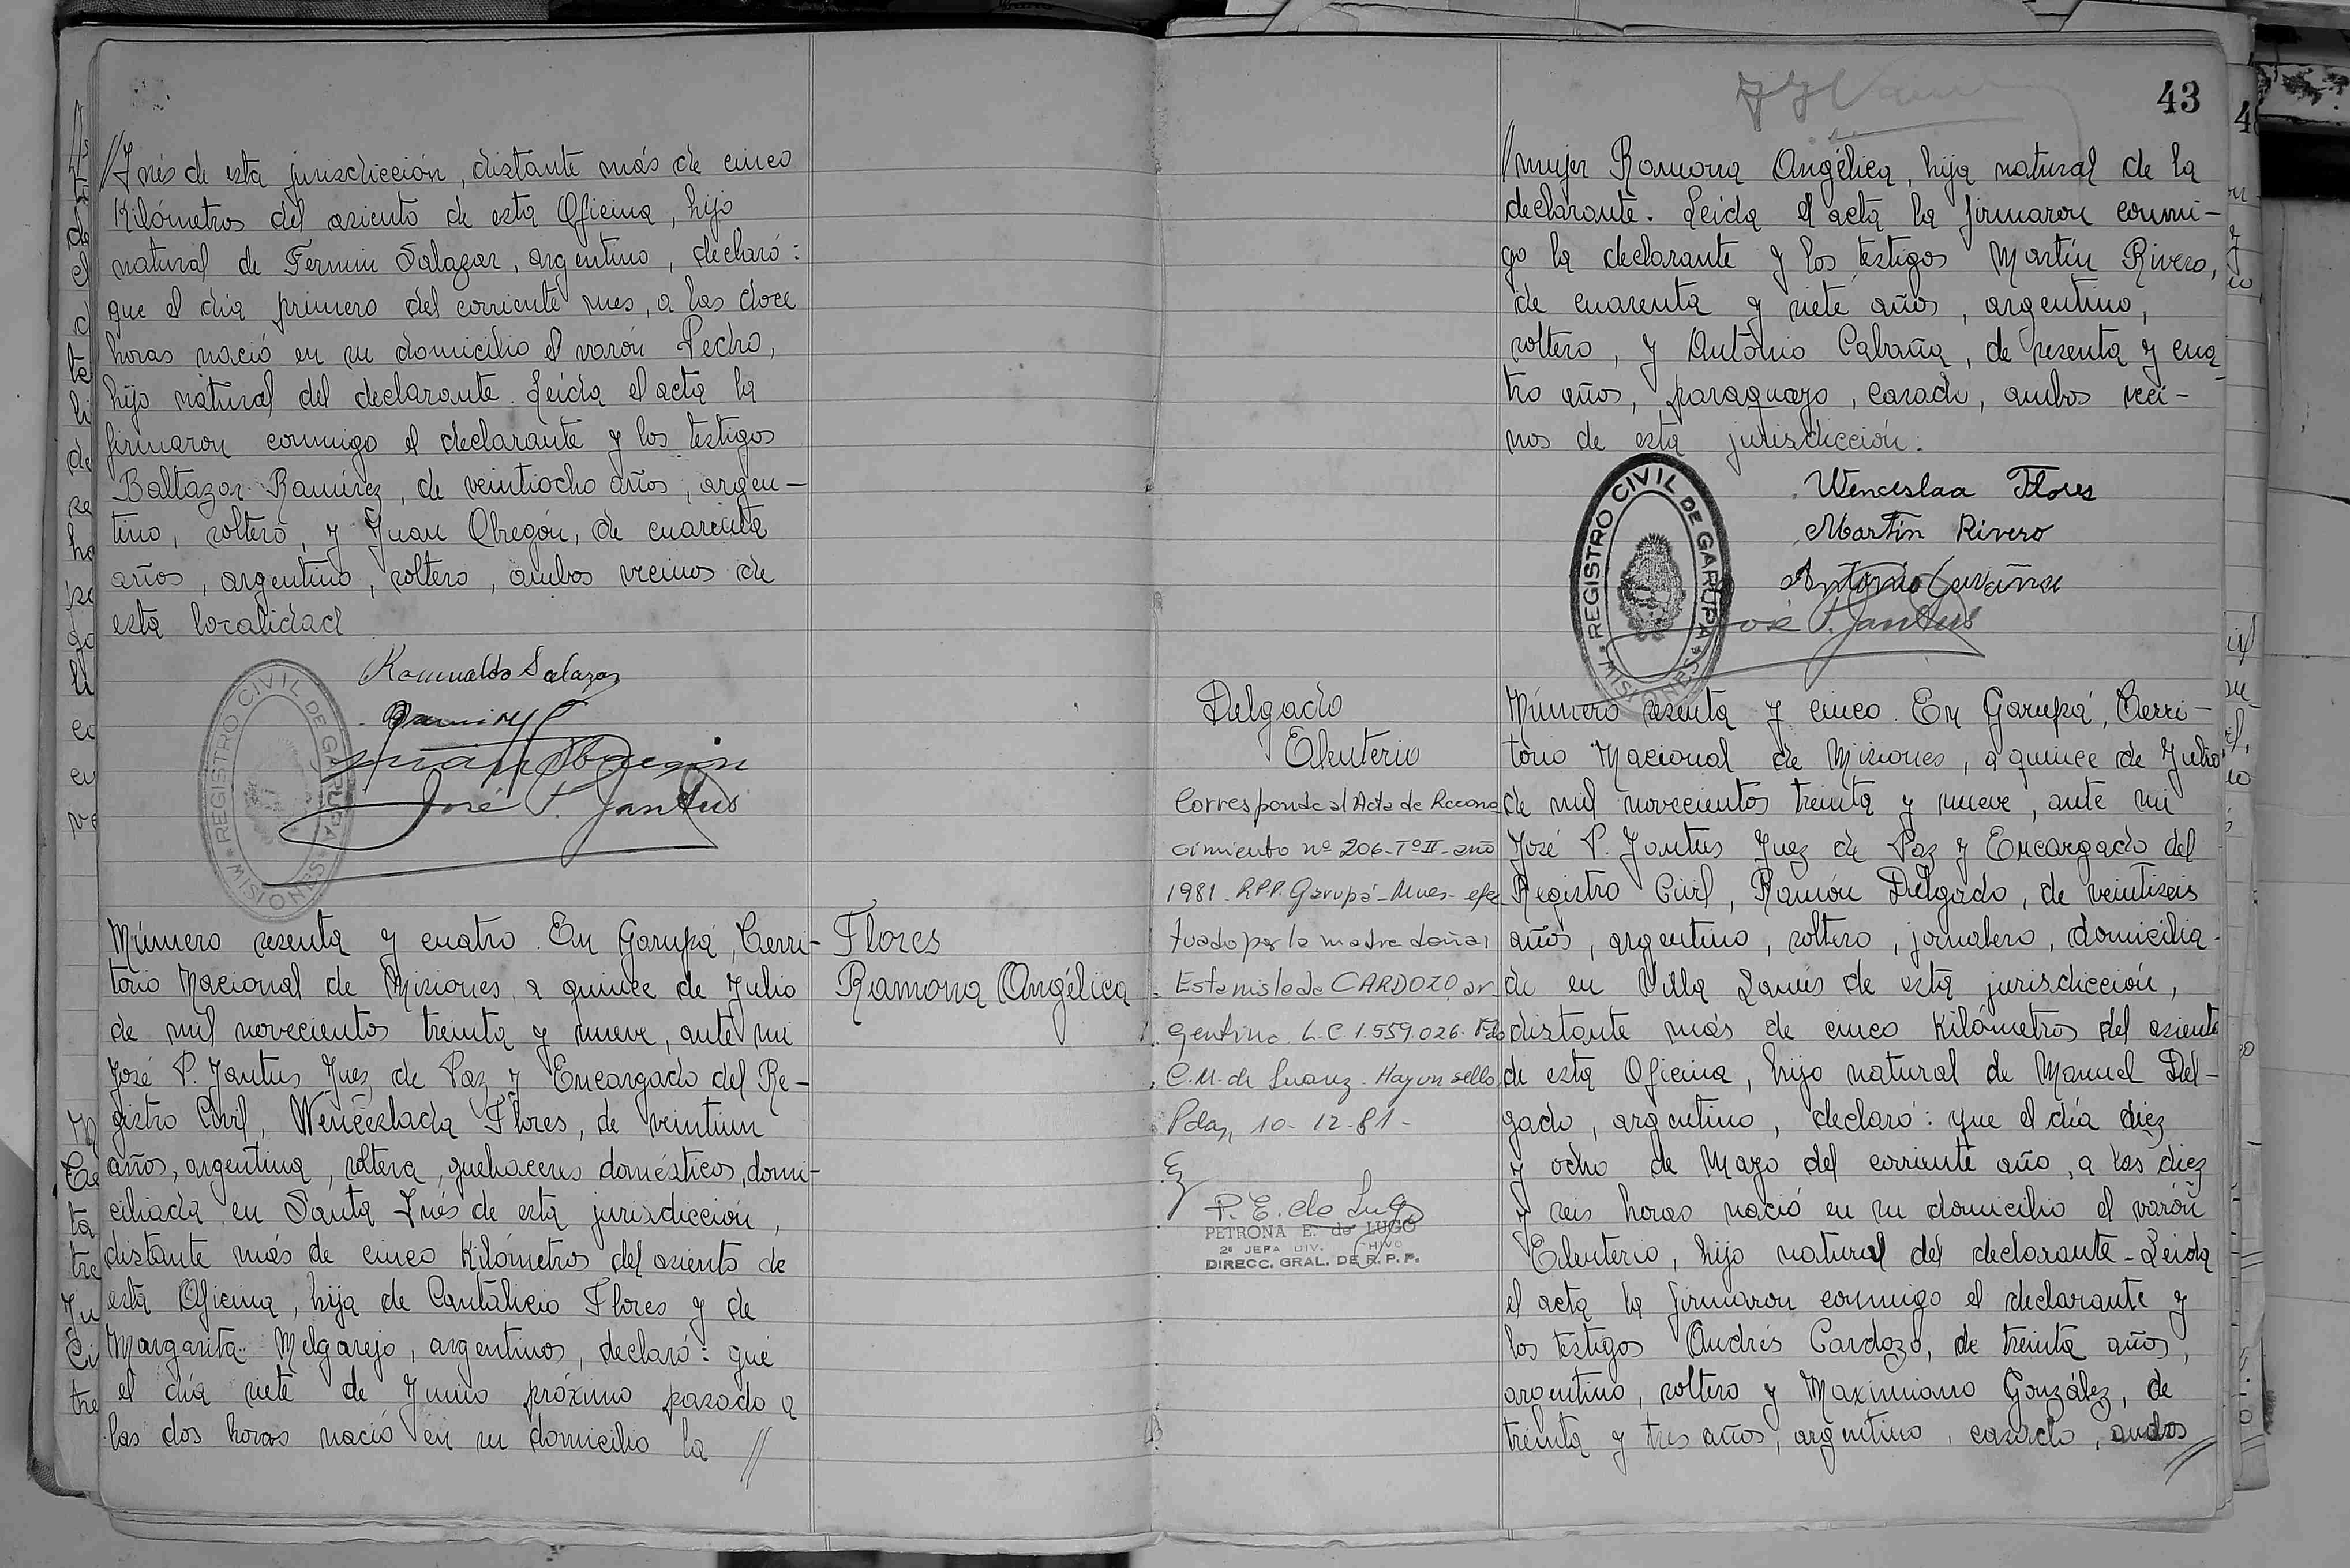 //Inés de esta jurisdicción, distante más de cinco
Kilómetros del asiento de esta Oficina, hijo
natural de Fermin Salazar, argentino, declaró:
que el día primero del corriente mes, a las doce
horas nació en su domicilio el varón Pedro,
hijo natural del declarante. Leída el acta la
firmaron conmigo el declarante y los testigos
Baltazar Ramírez, de veintiocho años, argen-
tino, soltero, y Juan Obregón, de cuarenta
años, argentino, soltero, ambos vecinos de
esta localidad
Romualdo Salazar
Juan Obregón
José P. Jantus
REGISTRO CIVIL DE GARUPA
* MISIONES *
Número sesenta y cuatro. En Garupá, Terri-
torio Nacional de Misiones, a quince de Julio
de mil novecientos treinta y nueve, ante mi
José P. Jantus Juez de Paz y Encargado del Re-
gistro Civil, Wenceslada Flores, de veintiun
años, argentina, soltera, quehaceres domésticos, domi-
ciliada en Santa Inés de esta jurisdicción,
distante más de cinco Kilómetros del asiento de
esta Oficina, hija de Cantalicio Flores y de
Margarita Melgarejo, argentinos, declaró: que
el día siete de Junio próximo pasado a
las dos horas nació en su domicilio la //
Flores
Ramona Angélica
43
//mujer Ramona Angélica, hija natural de la
declarante. Leída el acta la firmaron conmi-
go la declarante y los testigos Martín Rivero,
de cuarenta y siete años, argentino,
soltero, y Antonio Cabaña, de sesenta y cua-
tro años, paraguayo, casado, ambos veci-
nos de esta jurisdicción.
Wenceslaa Flores
Martín Rivero
Antonio Cavaña
José P. Jantus
REGISTRO CIVIL DE GARUPA
* MISIONES *
Delgado
Eleuterio
Corresponde al Acta de Recono
cimiento nº 206-Tº II-año
1981. R.P.P. Garupá-Mnes- efec
tuado por la madre doña
Estanislada CARDOZO, ar-
gentina L.C. 1.559.026. Fdo
C.M. de Suarez. Hay un sello.
Pdas, 10-12-81-
P. E. de Lugo
PETRONA E. de LUGO
2ª JEFA DIV. ARCHIVO
DIRECC. GRAL. DE R.P.P.
Número sesenta y cinco. En Garupá, Terri-
torio Nacional de Misiones, a quince de Julio
de mil novecientos treinta y nueve, ante mi
José P. Jantus Juez de Paz y Encargado del
Registro Civil, Ramón Delgado, de veintiseis
años, argentino, soltero, jornalero, domicilia-
do en Villa Lanús de esta jurisdicción,
distante más de cinco Kilómetros del asiento
de esta Oficina, hijo natural de Manuel Del-
gado, argentino, declaró: que el día diez
y ocho de Mayo del corriente año, a las diez
y seis horas nació en su domicilio el varón
Eleuterio, hijo natural del declarante-Leída
el acta la firmaron conmigo el declarante y
los testigos Andrés Cardozo, de treinta años,
argentino, soltero y Maximiano González, de
treinta y tres años, argentino, casado, ambos //